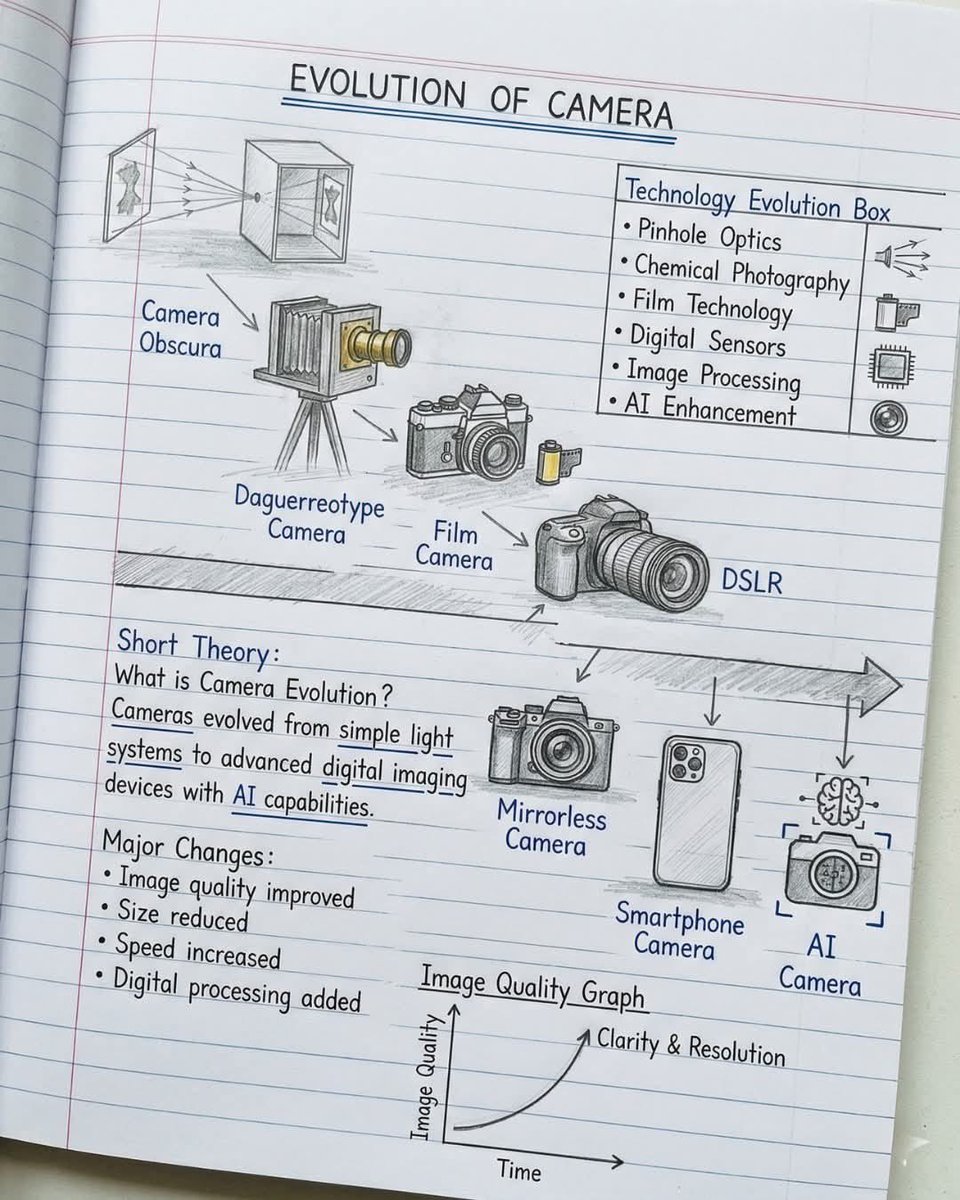 EVOLUTION OF CAMERA
Technology Evolution Box
• Pinhole Optics
• Chemical Photography
• Film Technology
• Digital Sensors
• Image Processing
• AI Enhancement
Camera
Obscura
Daguerreotype
Camera
Film
Camera
DSLR
Short Theory:
What is Camera Evolution?
Cameras evolved from simple light
systems to advanced digital imaging
devices with AI capabilities.
Mirrorless
Camera
Smartphone
Camera
AI
Camera
Major Changes:
• Image quality improved
• Size reduced
• Speed increased
• Digital processing added
Image Quality Graph
Image Quality
Clarity & Resolution
Time